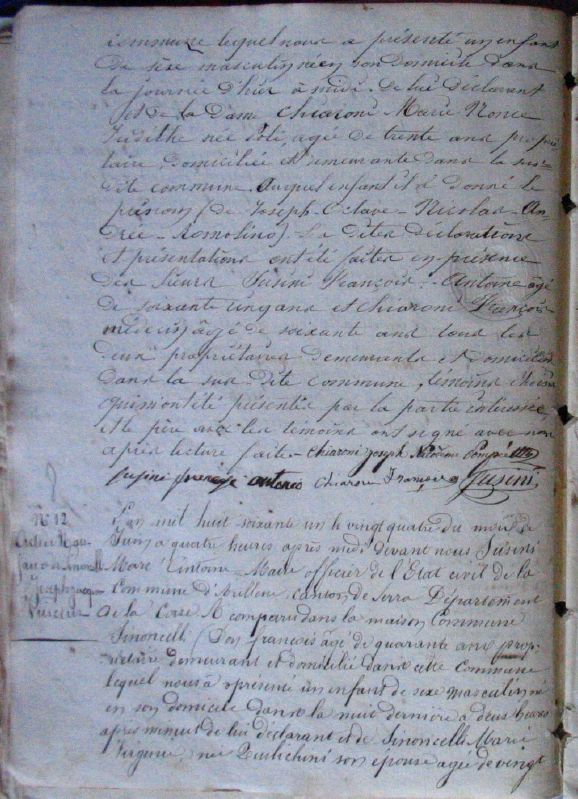 commune lequel nous a présenté un enfant
de sexe masculin né en son domicile dans
la journée d'hier à midi de lui déclarant
et de la Dame Chiaroni Marie Nonce
Judithe née Poli, agée de trente ans proprié
taire, domiciliée et demeurante dans la sus
dite commune. Auquel enfant il a donné le
prénom (de Joseph-Octave-Nicolas-An
drée-Romolino). Les dites déclarations
et présentations ont été faites en présence
des Sieurs Susini François-Antoine âgé
de soixante cinq ans et Chiaroni François
médecin âgé de soixante ans tous les
deux propriétaires demeurants et domiciliés
dans la sus-dite commune, témoins
qui m'ont été présentés par la partie intéressée
et le père avec les témoins ont signé avec nous
après lecture faite. Chiaroni Joseph
susini Chiaroni François Susini
N° 12
L'an mil huit soixante un le vingt quatre du mois de
Juin à quatre heures après midi devant nous Susini
Marc Antoine Maire officier de l'Etat civil de la
Commune d'Aullene, canton de Serra Département
de la Corse à comparu dans la maison Commune
Sinoncelli François âgé de quarante ans prop-
riétaire, demeurant et domicilié dans cette commune
lequel nous à présenté un enfant de sexe masculin né
en son domicile dans la nuit dernière à deux heures
après minuit de lui déclarant et de Sinoncelli Marie
née son épouse agée de vingt